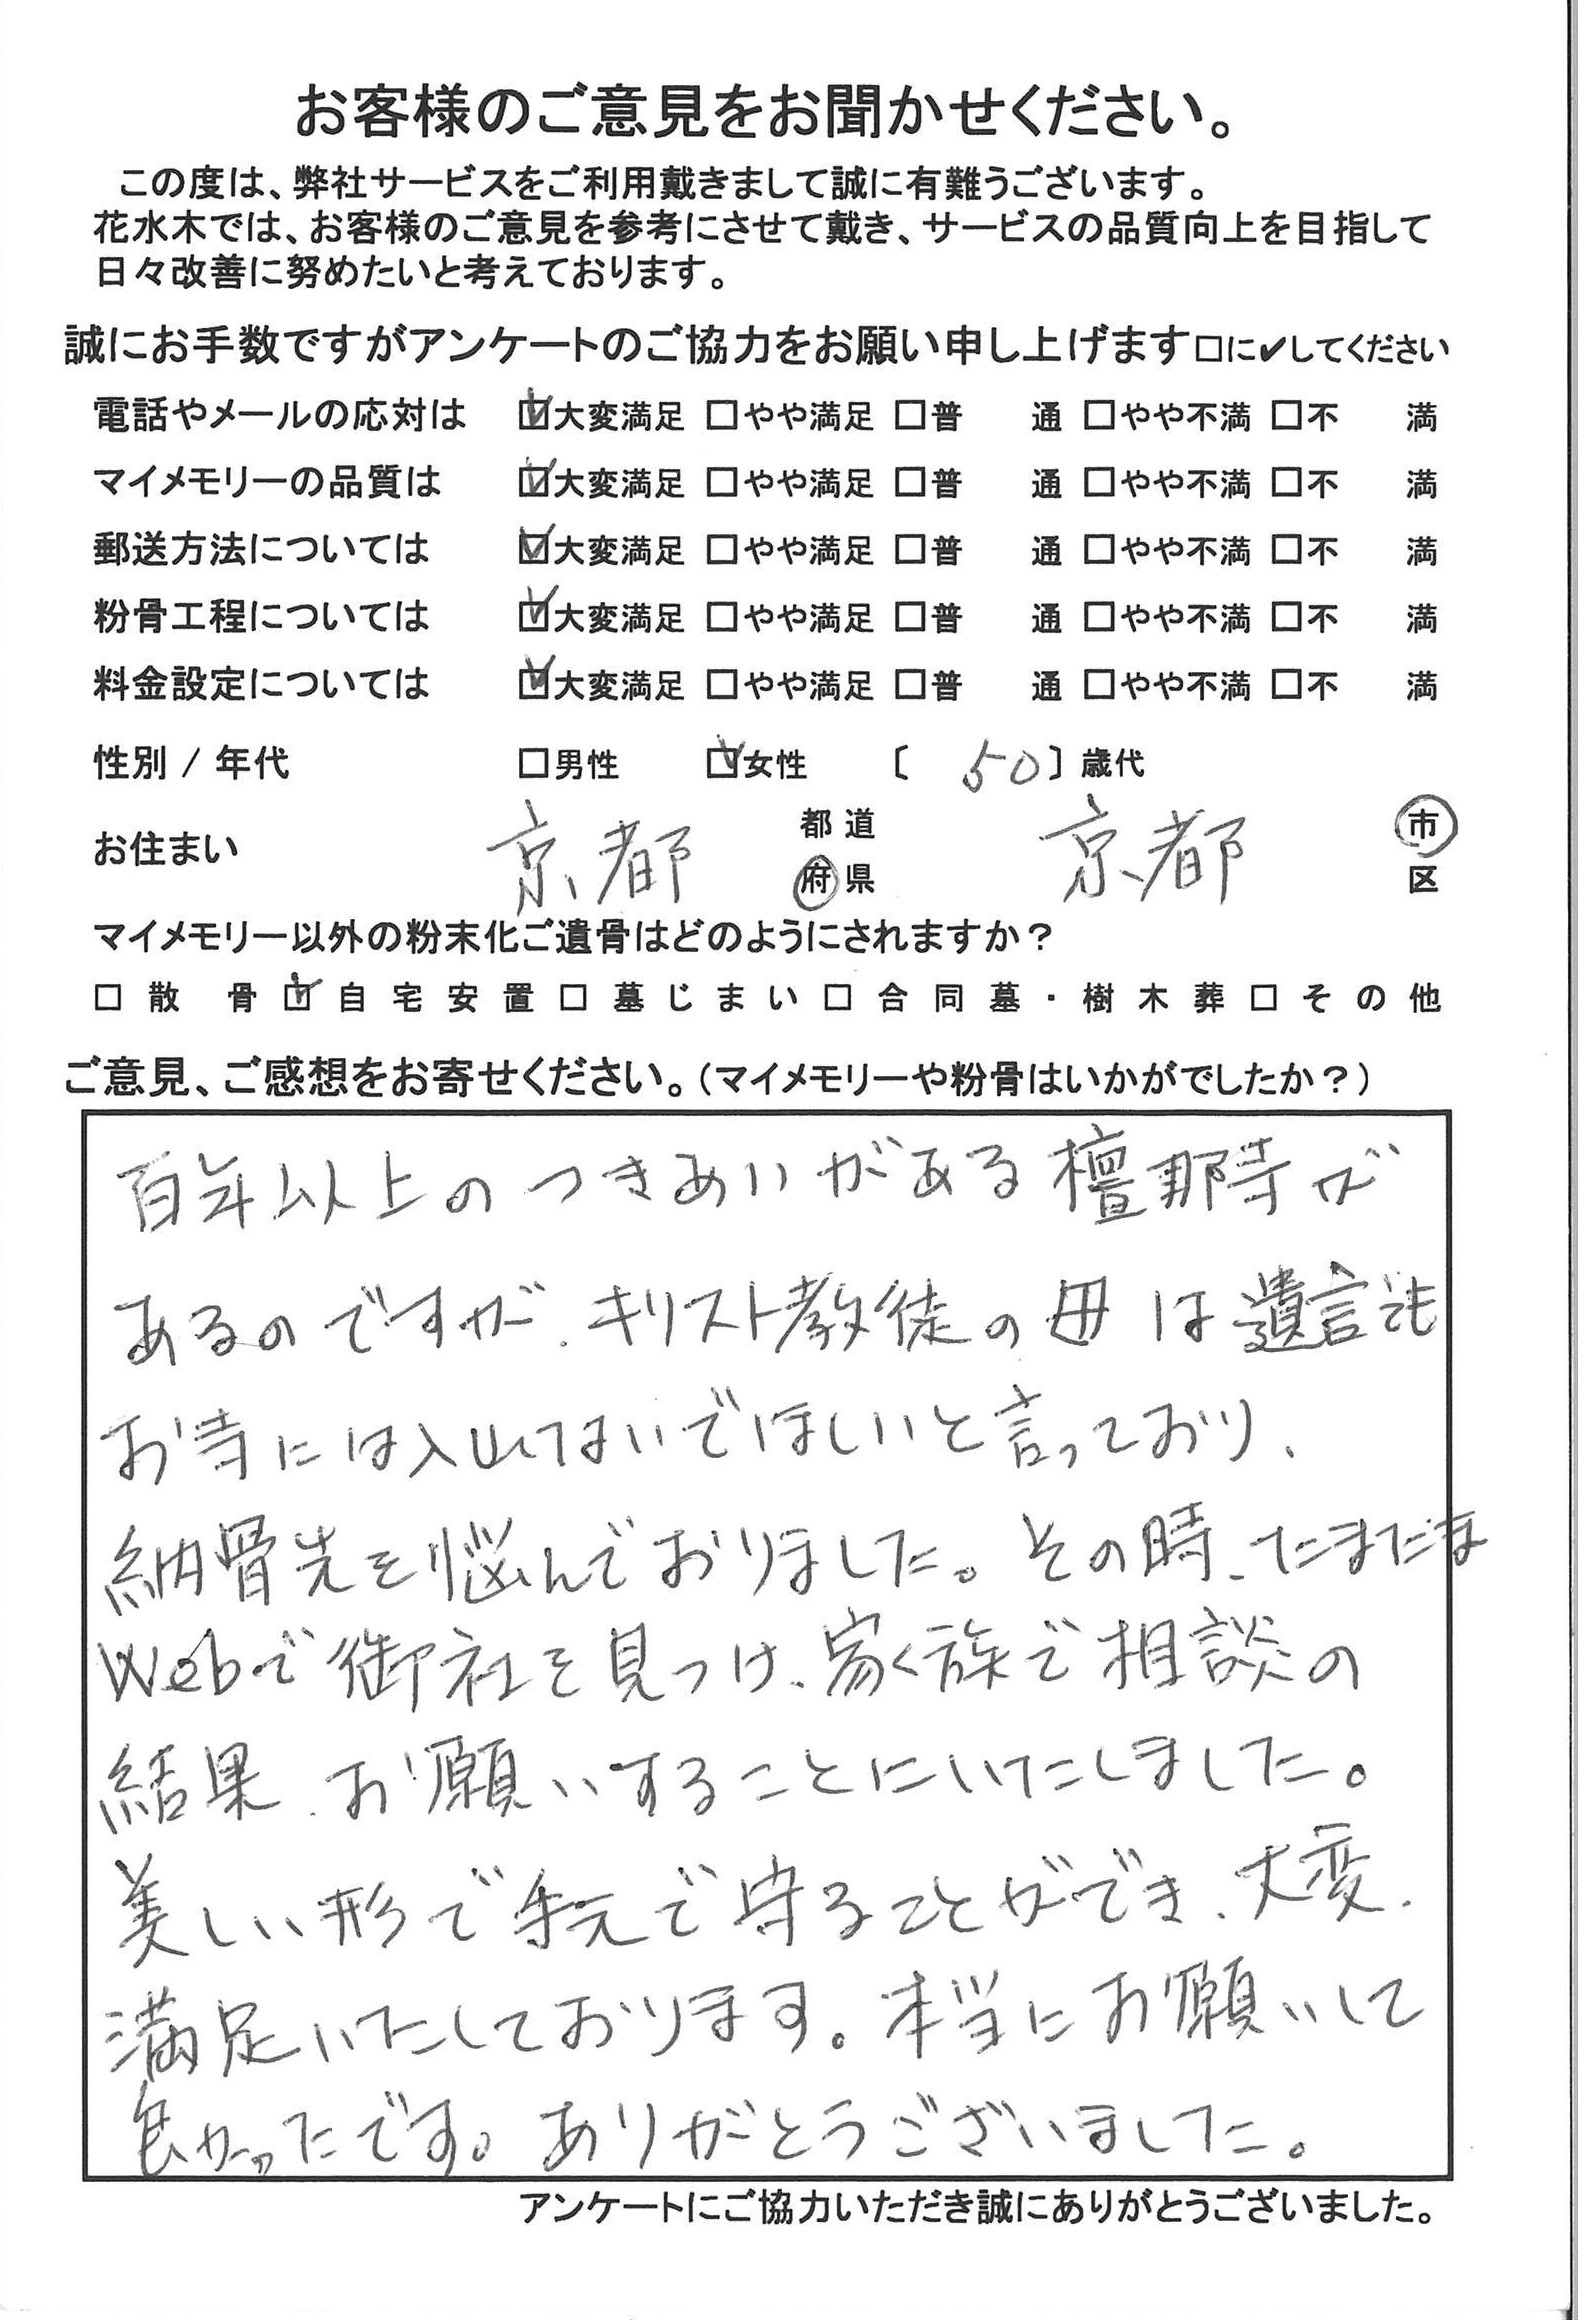 お客様のご意見をお聞かせください。
この度は、弊社サービスをご利用戴きまして誠に有難うございます。
花水木では、お客様のご意見を参考にさせて戴き、サービスの品質向上を目指して
日々改善に努めたいと考えております。
誠にお手数ですがアンケートのご協力をお願い申し上げます□に✔してください
電話やメールの応対は ☑大変満足 □やや満足 □普 通 □やや不満 □不 満
マイメモリーの品質は ☑大変満足 □やや満足 □普 通 □やや不満 □不 満
郵送方法については ☑大変満足 □やや満足 □普 通 □やや不満 □不 満
粉骨工程については ☑大変満足 □やや満足 □普 通 □やや不満 □不 満
料金設定については ☑大変満足 □やや満足 □普 通 □やや不満 □不 満
性別 / 年代 □男性 ☑女性 〔 50 〕歳代
お住まい 京都 都道府県 京都 市区
マイメモリー以外の粉末化ご遺骨はどのようにされますか？
□ 散 骨 ☑ 自宅安置 □ 墓じまい □ 合同墓・樹木葬 □ その他
ご意見、ご感想をお寄せください。（マイメモリーや粉骨はいかがでしたか？）
百年以上のつきあいがある檀那寺が
あるのですが、キリスト教徒の母は遺言でも
お寺には入れないでほしいと言っており、
納骨先を悩んでおりました。その時、たまたま
Webで御社を見つけ、家族で相談の
結果、お願いすることにいたしました。
美しい形で手元で守ることができ、大変、
満足いたしております。本当にお願いして
良かったです。ありがとうございました。
アンケートにご協力いただき誠にありがとうございました。